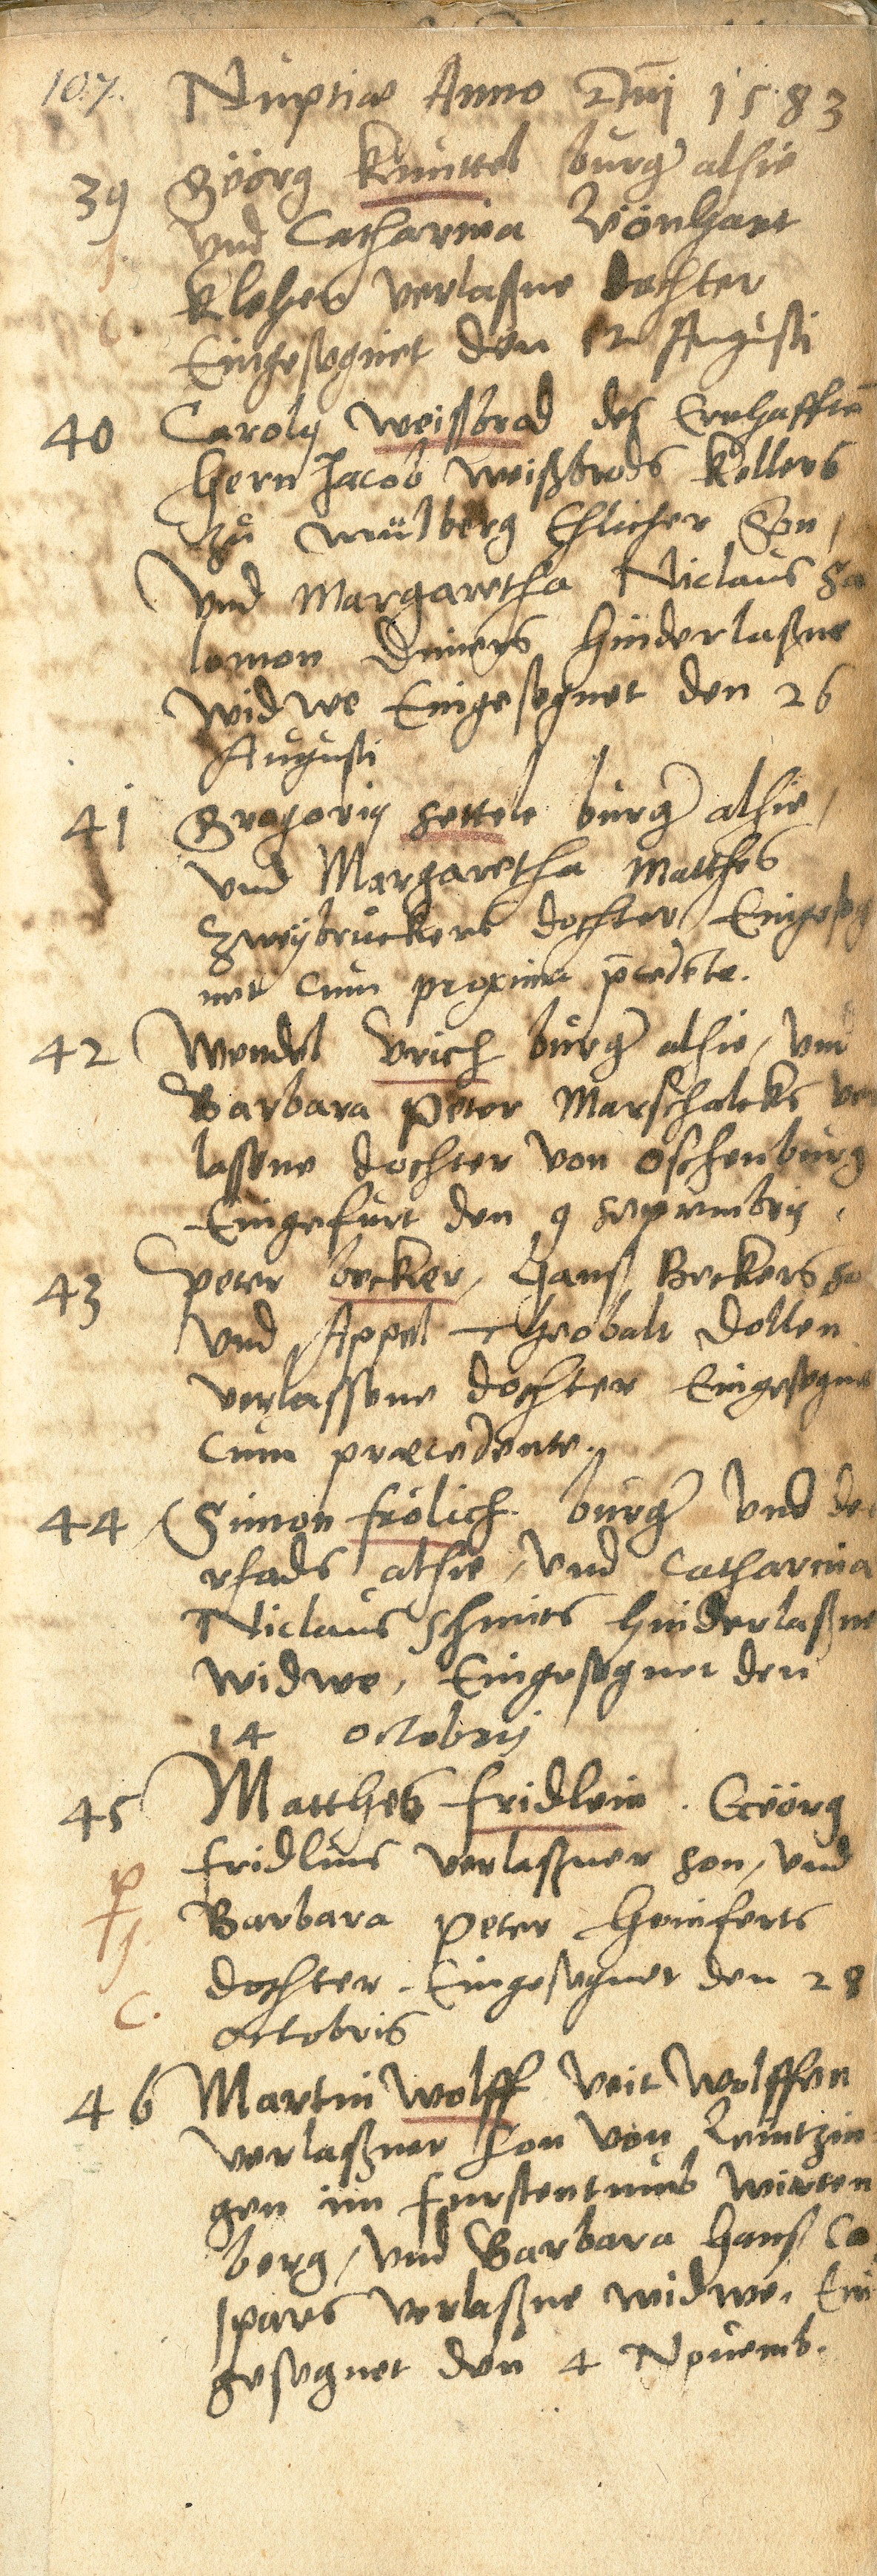 107. Nuptiæ Anno Dni 1583
39 Geörg Knuttel burger alhie
und Catharina Lönhart
Klehes verlaßne dochter
Eingesegnet den 12 Augusti
40 Carolus Weissbrod des Ernhafften
Hern Jacob Weißbrods Kellers
zu Mülberg Ehlicher Son,
Vnd Margaretha Niclaus Sa
lomon Dimers hinderlaßne
Widwe Eingesegnet den 26
Augusti
41 Gregorius Settele burger alhie,
vnd Margaretha Matthes
Zweybruckers dochter Eingeseg
net cum proxime pcedete.
42 Wendel Vrich burger alhie, vnd
Barbara Peter Marschalcks ver
lassene dochter von Oschenburg
Eingefurt den 9 Septembris.
43 Peter becker, Hans Beckers so
Vnd Appel Theobalt Dollen
verlassene dochter Eingesegne
cum præcedente.
44 Simon frölich burger vnd de
rhads alhie, vnd Catharina
Niclaus Schmits hinderlaßne
Widwe, Eingesegnet den
14 octobris
45 Matthes fridlein. Geörg
fridlins verlaßner son, vnd
P
Barbara Peter Heinferts
dochter. Eingesegnet den 28
C.
Octobris
46 Martin Wolff Veit Wolffen
verlaßner son von Leintzin
gen im Furstentumb Wirten
berg, vnd Barbara Hans Ca
spars verlaßne widwe. Ein
gesegnet den 4 Nouemb.